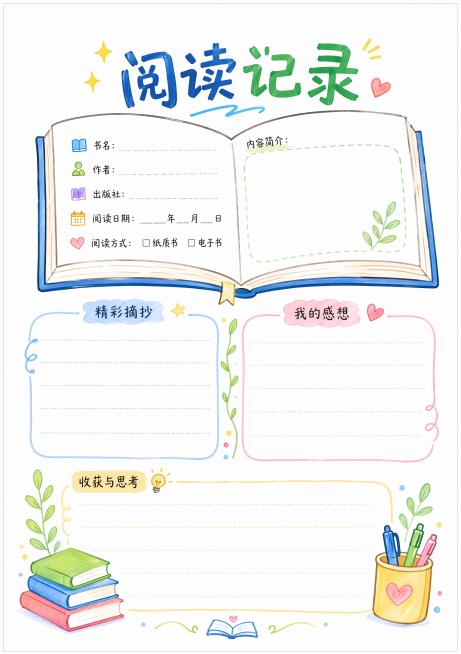 阅读记录
书名：
作者：
出版社：
阅读日期：____年__月__日
阅读方式： □纸质书 □电子书
内容简介：
精彩摘抄
我的感想
收获与思考